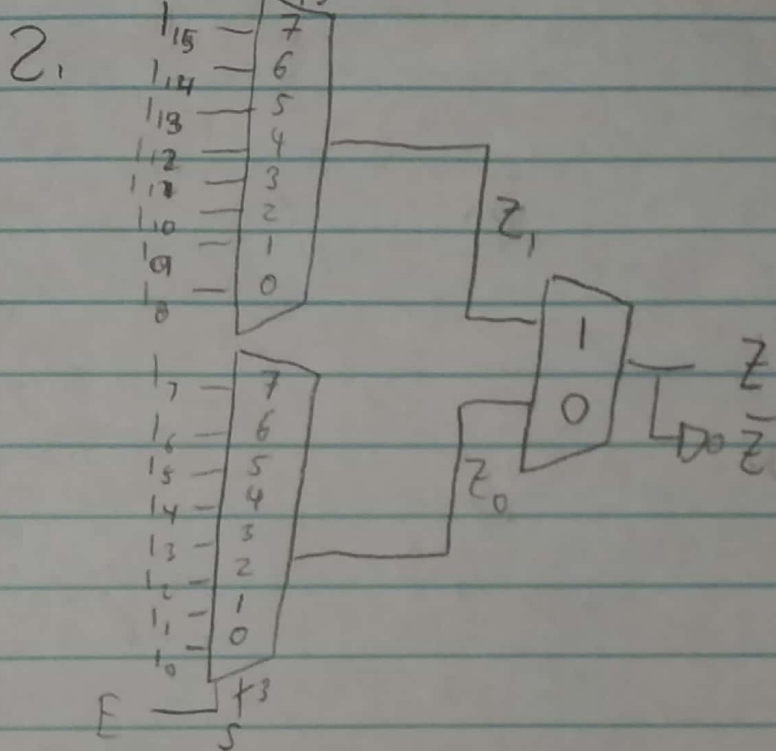 2.
I15 7
I14 6
I13 5
I12 4
I11 3
I10 2
I9 1
I8 0
Z1
1
0
Z
Z̄
I7 7
I6 6
I5 5
I4 4
I3 3
I2 2
I1 1
I0 0
Z0
E
3
S